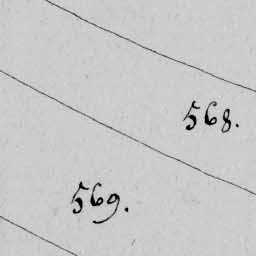 568.
569.